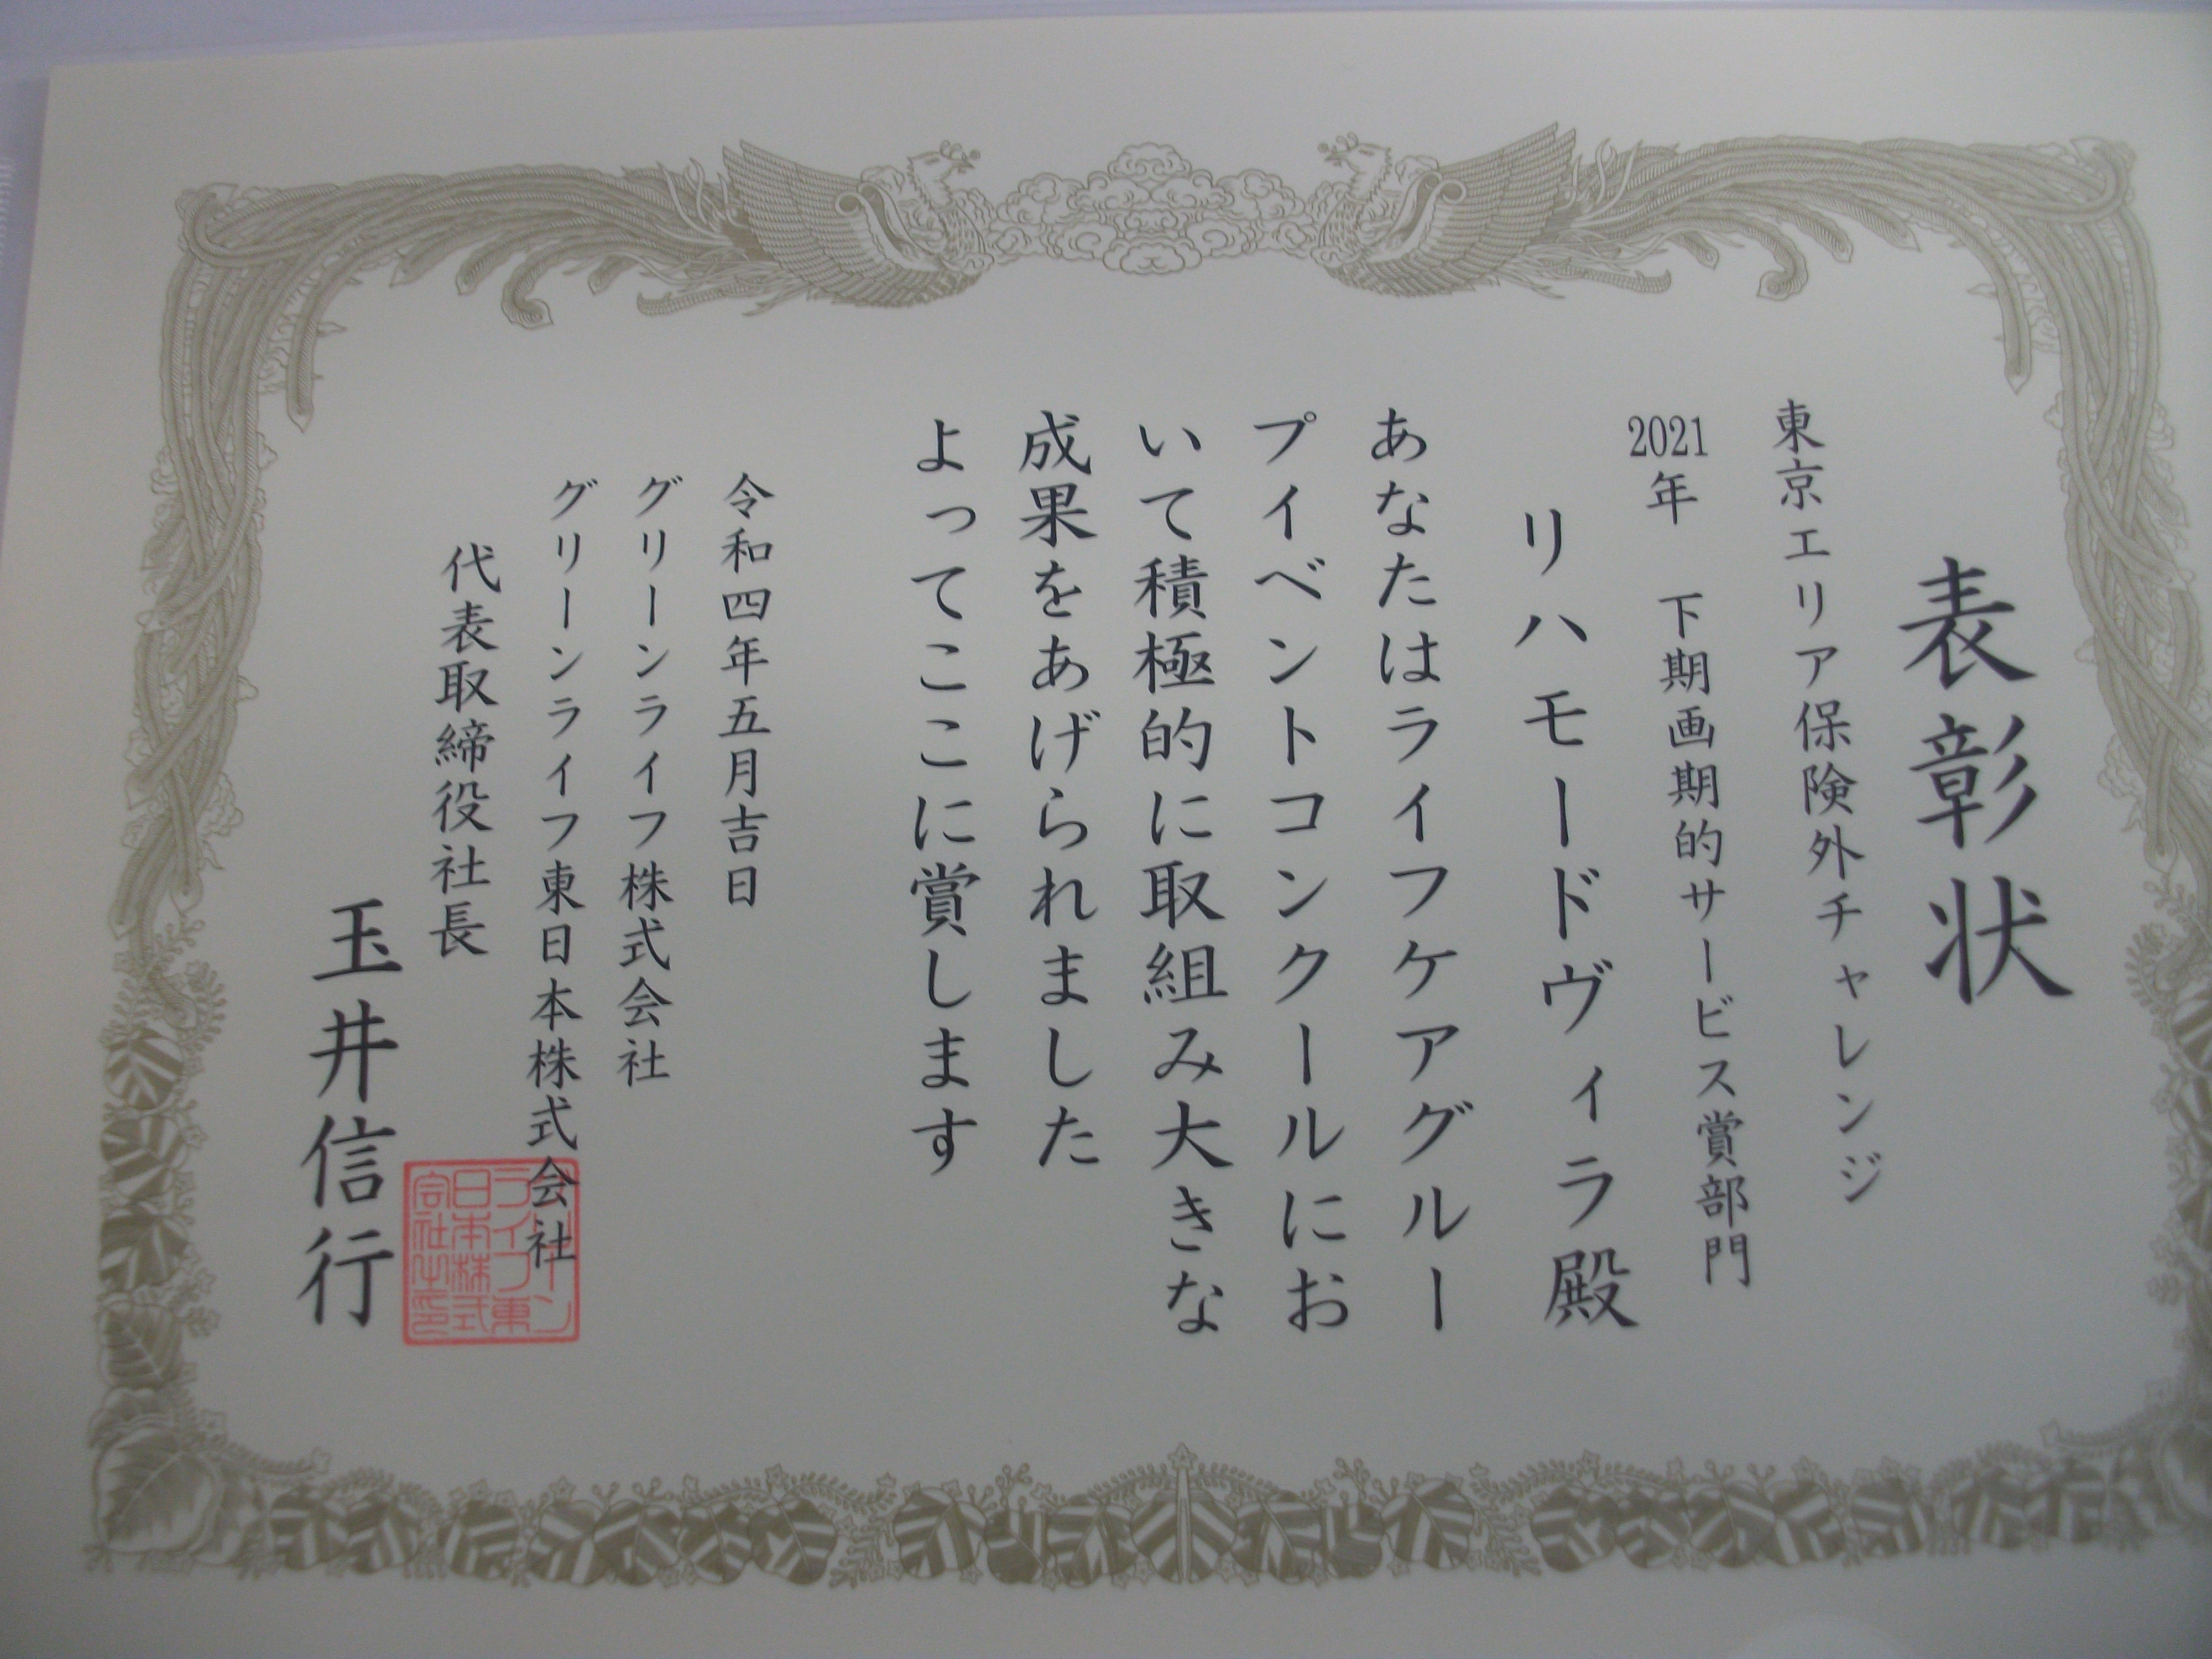 表彰状
東京エリア保険外チャレンジ
2021年　下期画期的サービス賞部門
リハモードヴィラ殿
あなたはライフケアグルー
プイベントコンクールにお
いて積極的に取組み大きな
成果をあげられました
よってここに賞します
令和四年五月吉日
グリーンライフ株式会社
グリーンライフ東日本株式会社
代表取締役社長
玉井信行